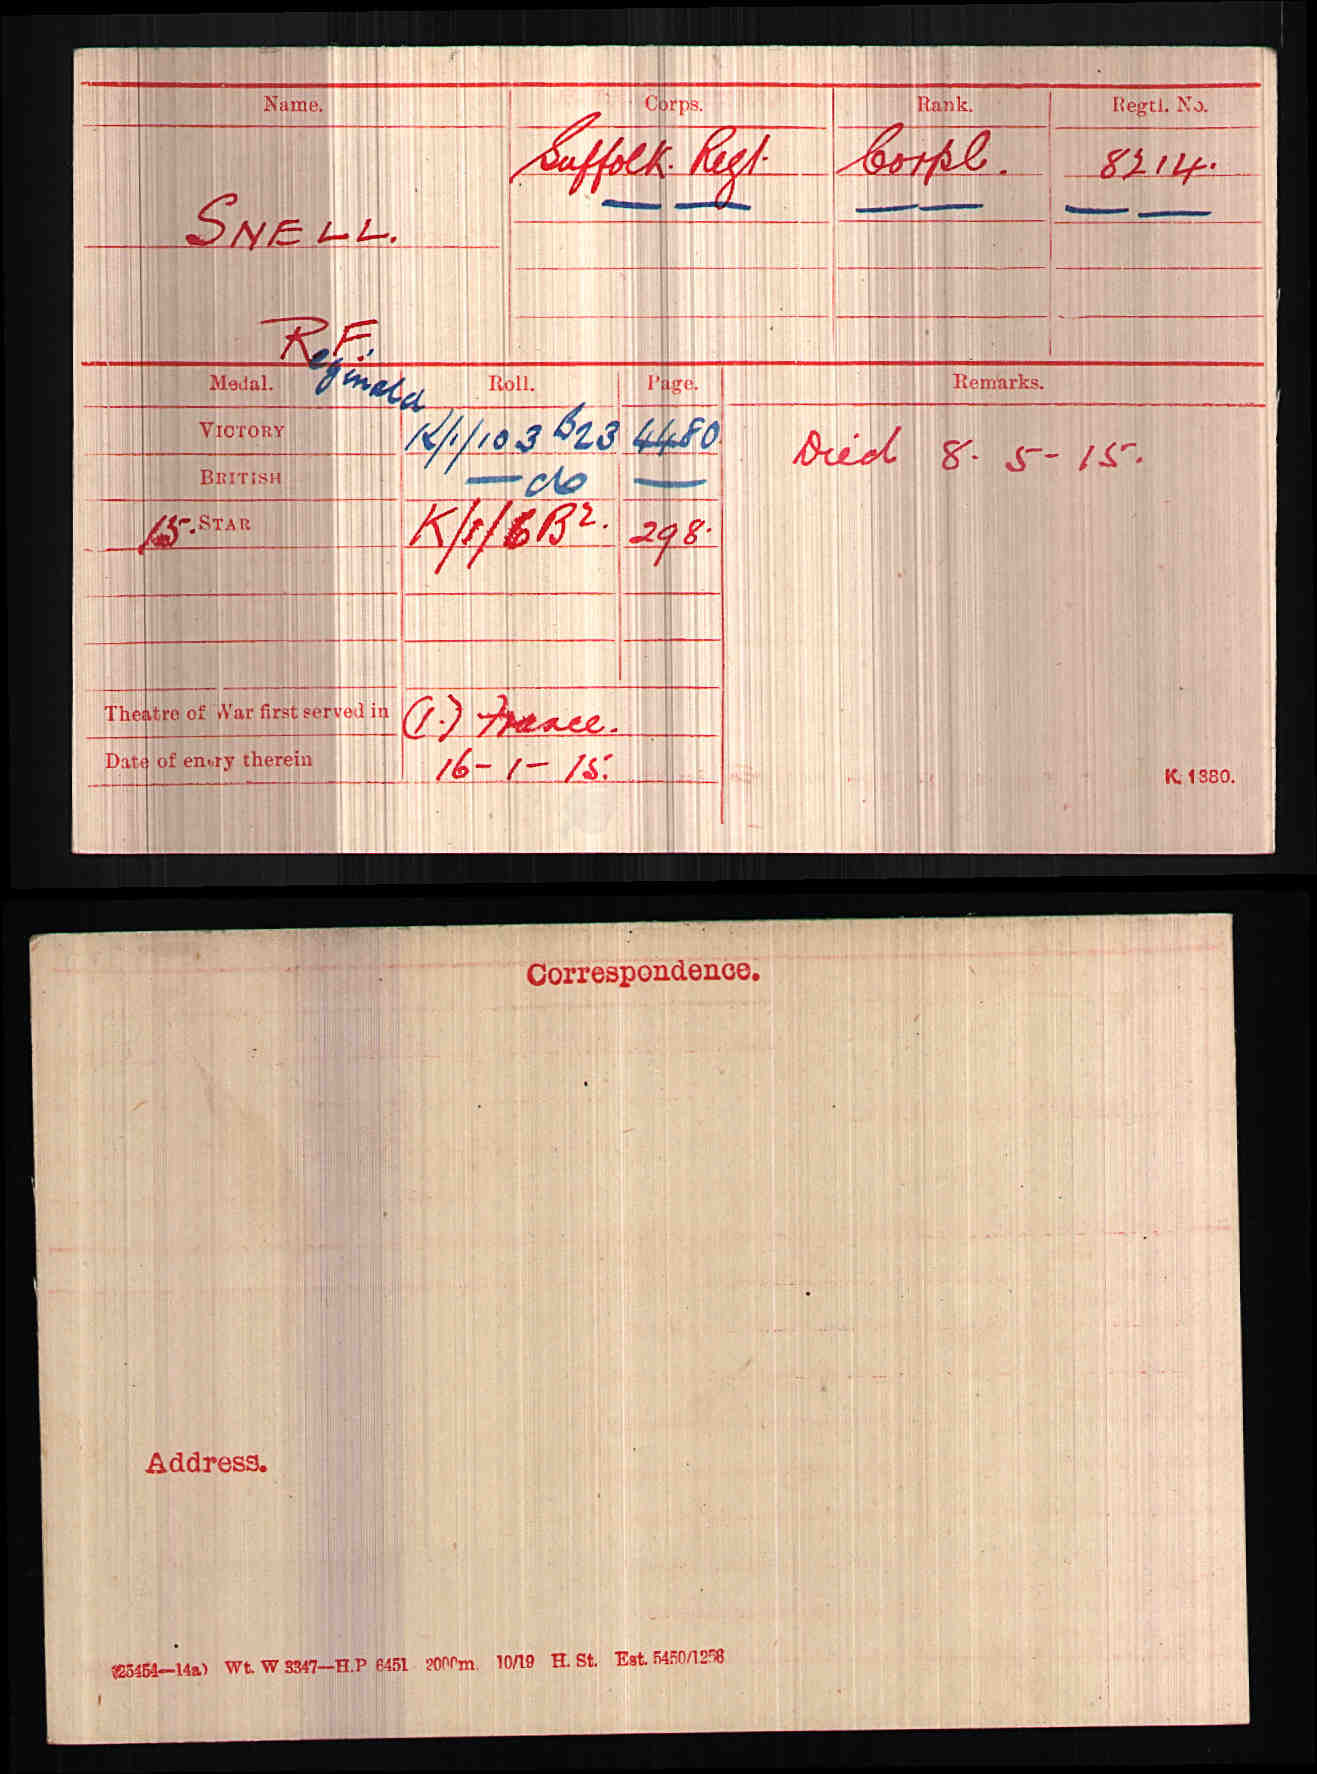 Name. Corps. Rank. Regtl. No.
Suffolk. Regt. Corpl. 8214.
SNELL.
R.F.
Reginald
Medal. Roll. Page. Remarks.
VICTORY K/1/103 B23 4480
Died 8-5-15.
BRITISH — do —
15. STAR K/1/6 B2. 298.
Theatre of War first served in (1.) France.
Date of entry therein 16-1-15.
K. 1380.
Correspondence.
Address.
(25454—14a) Wt. W 3347—H.P 6451 2000m. 10/19 H. St. Est. 5450/1256